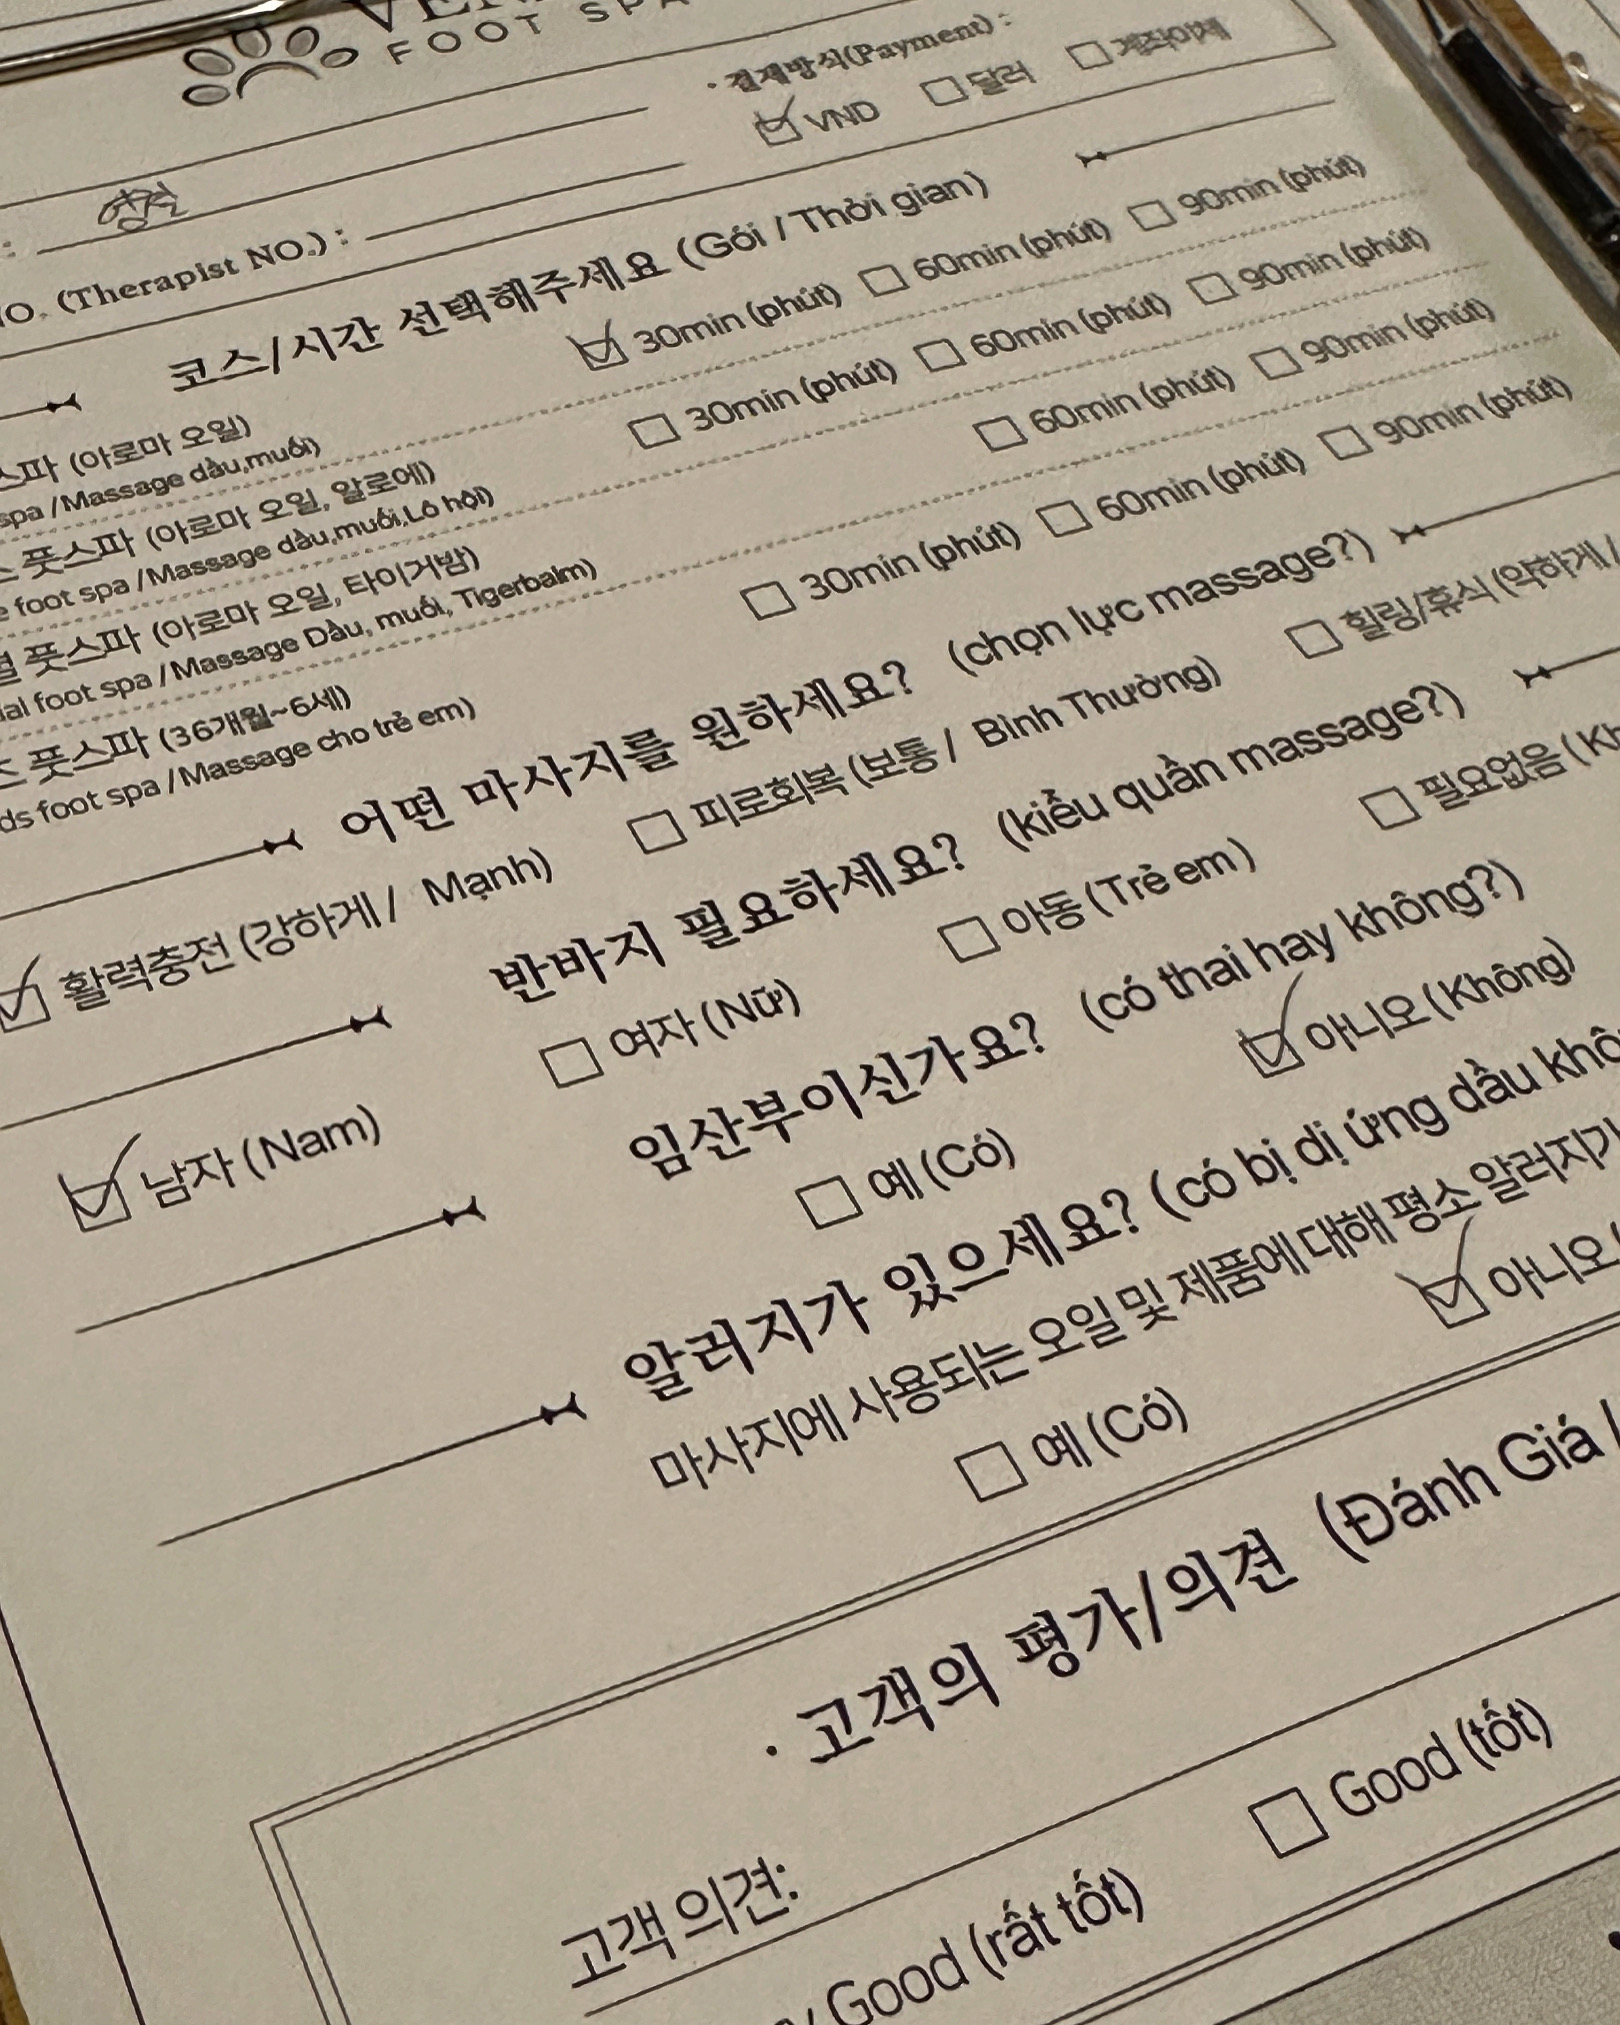 FOOT SPA
· 결제방식(Payment) :
VND 달러 계좌이체
NO. (Therapist NO.) :
코스/시간 선택해주세요 (Gói / Thời gian)
스파 (아로마 오일) 30min (phút) 60min (phút) 90min (phút)
spa / Massage dầu,muối)
풋스파 (아로마 오일, 알로에) 30min (phút) 60min (phút) 90min (phút)
foot spa / Massage dầu,muối,Lô hội)
풋스파 (아로마 오일, 타이거밤) 60min (phút) 90min (phút)
foot spa / Massage Dầu, muối, Tigerbalm)
풋스파 (36개월~6세) 30min (phút) 60min (phút) 90min (phút)
foot spa / Massage cho trẻ em)
어떤 마사지를 원하세요? (chọn lực massage?)
활력충전 (강하게 / Mạnh) 피로회복 (보통 / Bình Thường) 힐링/휴식 (약하게 /
반바지 필요하세요? (kiểu quần massage?)
남자 (Nam) 여자 (Nữ) 아동 (Trẻ em) 필요없음 (
임산부이신가요? (có thai hay không?)
예 (Có) 아니오 (Không)
알러지가 있으세요? (có bị dị ứng dầu
마사지에 사용되는 오일 및 제품에 대해 평소 알러지가
예 (Có) 아니오
· 고객의 평가/의견 (Đánh Giá /
고객 의견:
Good (rất tốt) Good (tốt)